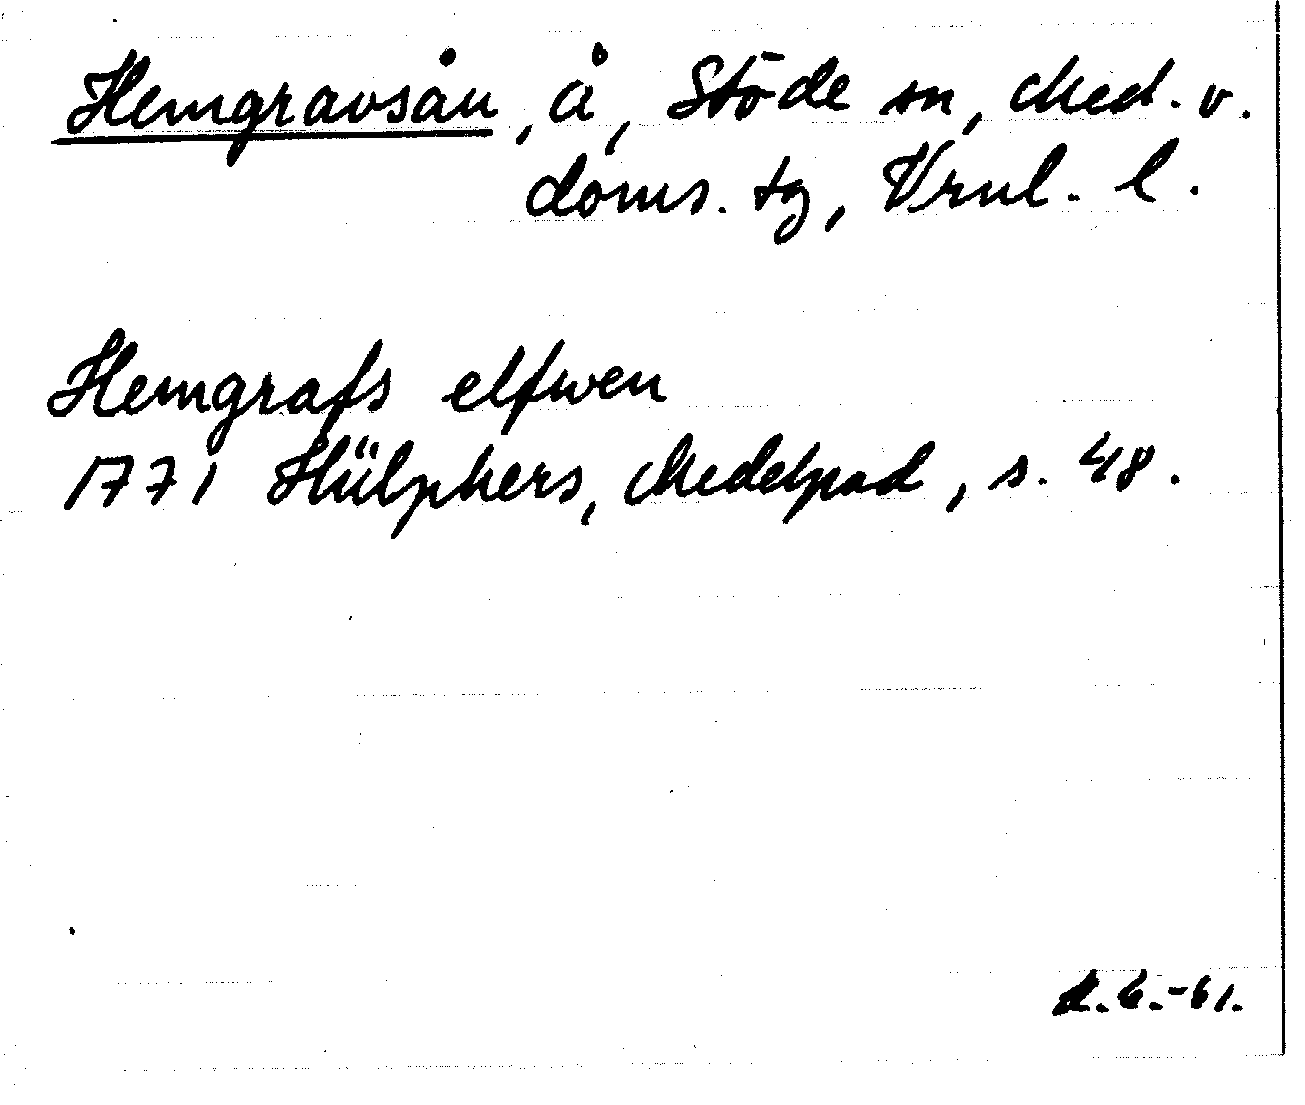 Hemgravsån, å, Stöde sn, Med. v.
doms. tg, Vrnl. l.
Hemgrafs elfwen
1771 Hülphers, Medelpad, s. 48.